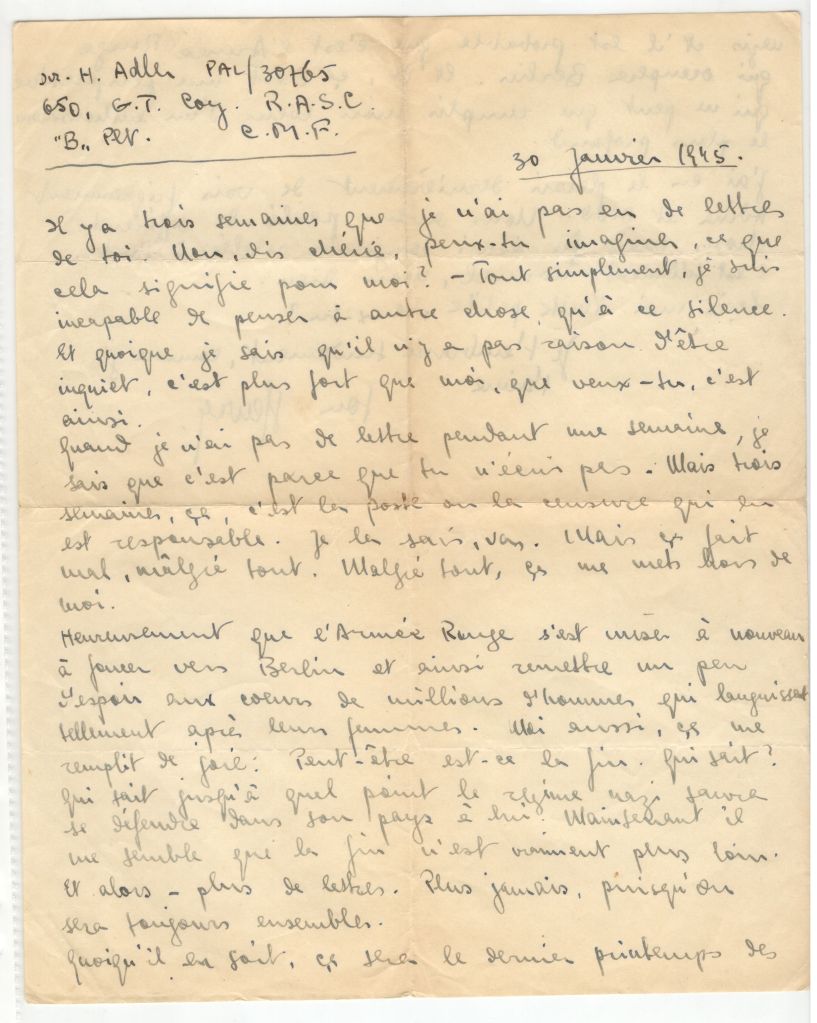 Dr. H. Adler PAL/30765
650, G.T. Coy. R.A.S.C.
"B„ Plt. C.M.F.
30 Janvier 1945.
Il y a trois semaines que je n'ai pas eu de lettres
de toi. Non, dis chérie, peux-tu imaginer, ce que
cela signifie pour moi? – Tout simplement, je suis
incapable de penser à autre chose, qu'à ce silence.
Et quoique je sais qu'il n'y a pas raison d'être
inquiet, c'est plus fort que moi, que veux-tu, c'est
ainsi.
Quand je n'ai pas de lettre pendant une semaine, je
sais que c'est parce que tu n'écris pas. Mais trois
semaines, ça, c'est la poste ou la censure qui en
est responsable. Je le sais, va. Mais ça fait
mal, malgré tout. Malgré tout, ça me mets hors de
moi.
Heureusement que l'Armée Rouge s'est miser à nouveau
à foncer vers Berlin et ainsi remettre un peu
d'espoir aux coeurs de millions d'hommes qui languissent
tellement après leurs femmes. Moi aussi, ça me
remplit de joie: Peut-être est-ce la fin. Qui sait?
Qui sait jusqu'à quel point le régime nazi saura
se défendre dans son pays à lui. Maintenant il
me semble que la fin n'est vraiment plus loin.
Et alors – plus de lettres. Plus jamais, puisqu'on
sera toujours ensembles.
Quoiqu'il en soit, ça sera le dernier printemps des